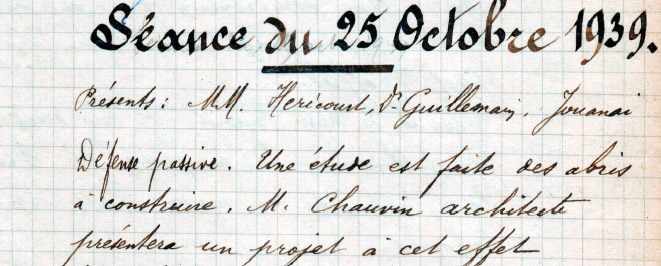 Séance du 25 Octobre 1939.
Présents: MM. Hericourt, Dr Guillemain, Jouanai
Défense passive. Une étude est faite des abris
à construire. M. Chauvin architecte
présentera un projet à cet effet